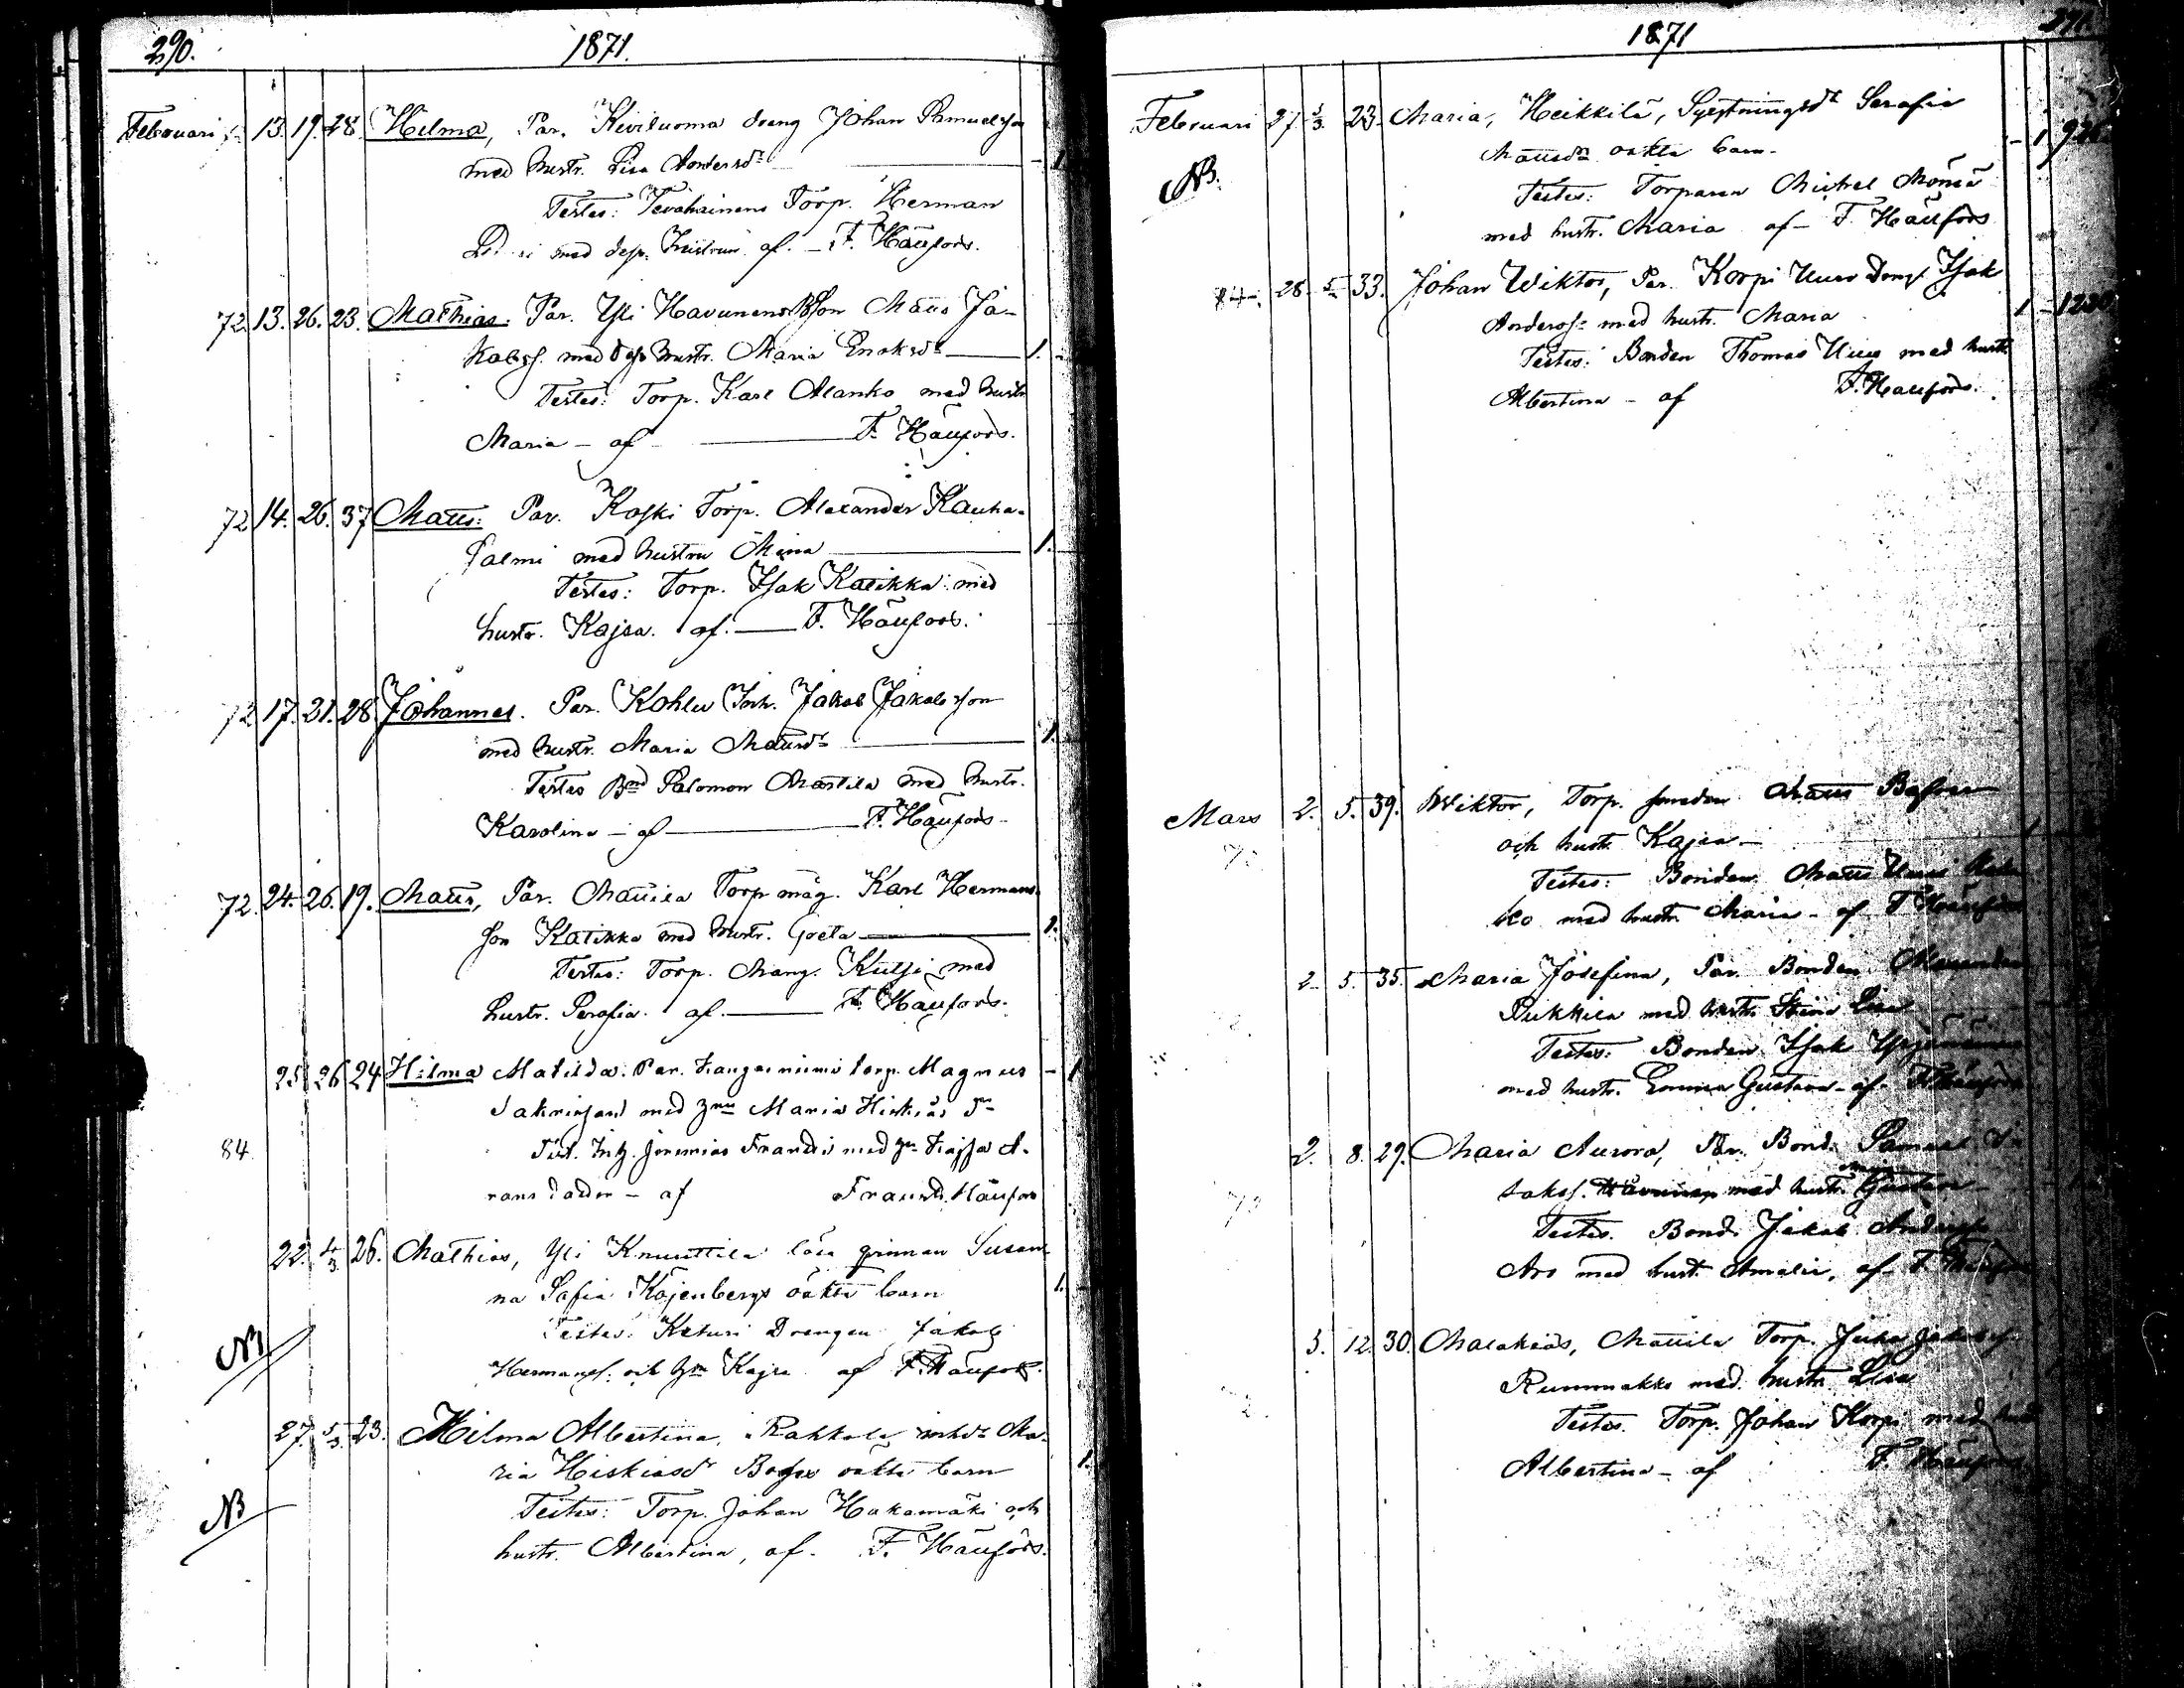 290. 1871.
Februari 13. 19. 28. Hilma, Par. Kiviluoma dreng Johan Samuelsson
med hustr. Lisa Andersdr 1.
Testes: Tevahainens Torp. Herman
med dess hustru af - F. Häufors.
72 13. 26. 23. Mathias. Par. Yli Havunens Son Matts Ja-
kobss. med dess hustr. Maria Enoksdr 1.
Testes: Torp. Karl Alanko med hustr
Maria - af F. Häufors.
72 14. 26. 37 Matts: Par. Koski Torp. Alexander Kauha-
salmi med hustru Mina 1.
Testes: Torp. Isak Katikka med
hustr. Kajsa. af. F. Häufors.
72 17. 21. 28 Johannes. Par. Kohlu Inh. Jakob Jakobsson
med hustr. Maria Mattsdr 1.
Testes Bnd Salomon Marttila med hustr.
Karolina - af F. Häufors
72. 24. 26. 19. Matts, Par. Mattila Torp måg. Karl Hermans-
son Katikka med hustr. Greta 1.
Testes: Torp. Mang. Kutsi med
hustr. Serafia. af. F. Häufors.
25 26 24 Hilma Matilda. Par. Kangasniemi torp. Magnus - 1
Sakrisson med hru Maria Hiskias dr
84 Test. Inh. Jeremias Frandsi med hu Kajsa A-
rons dotter - af Frans Häufors
22. 4/3 26. Mathias, Yli Knuuttila lösa qvinnan Susan-
na Sofia Köjenbergs oäkta barn 1.
Testes: Keturi Drengen Jakob
NB Hermanss. och hu Kajsa af F. Häufors.
27. 5/3 23. Hilma Albertina, Rahkola inhdr Ma-
ria Hiskiasdr Bogas oäkta barn 1.
Testes: Torp. Johan Hakamäki och
NB hustr. Albertina, af. F. Häufors.
1871
Februari 27 5/3 23. Maria, Heikkilä, Sytningsdr Serafia
NB. Mattsdrs oäkta barn - 1
Testes: Torparen Michel Mömä
med hustr. Maria af - F. Häufors
84. 28 5 33. Johan Wiktor, Par. Korpi Uuro Dreng Isak
Anderss: med hustr. Maria 1
Testes: Bonden Thomas Uuro med hustr.
Albertina - af F. Häufors.
Mars 2. 5. 39. Wiktor, Torp. Matts
och hustr. Kajsa -
Testes: Bonden Matts
med hustr. Maria - af F Häufors
2 5. 35. Maria Josefina, Par. Bonden Alexander
Pukkila med hustr. Stina Lisa
Testes: Bonden Isak
med hustr. Emma Gustava - af F Häufors
2. 8. 29. Maria Aurora, Par. Bond. Samuel I-
saks. med hustr.
Testes. Bond. Jakob Anderss
Aro med hustr. Amalia, af F. Häufors
5. 12. 30. Malakias, Mattila Torp. Juha Jakobss.
Rummakko med hustr. Lisa
Testes. Torp. Johan Korpi med hustr
Albertina - af F. Häufors